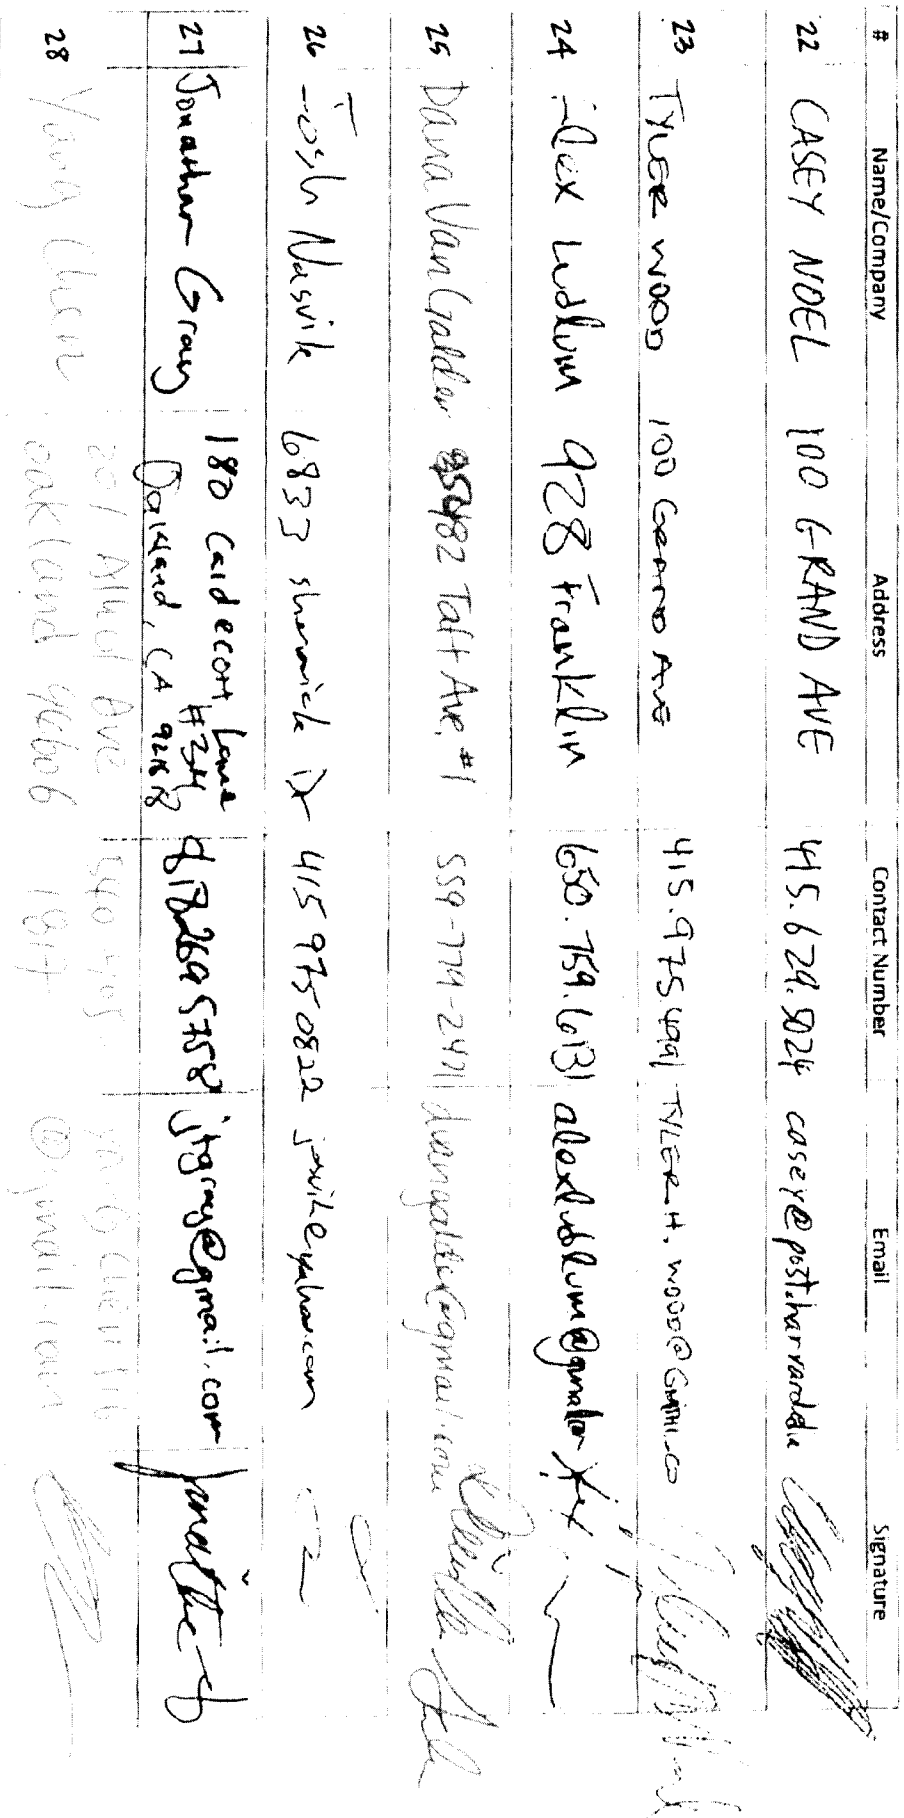 # Name/Company Address Contact Number Email Signature
22 CASEY NOEL 100 GRAND AVE 415.629.5024 casey@post.harvard.edu
23 TYLER WOOD 100 GRAND AVE 415.975.4991 TYLER.H.WOOD@GMAIL.CO
24 Alex Ludlum 928 Franklin 650.759.6131 alexludlum@gmail.com
25 Dana VanGalder 482 Taft Ave. #1 559-779-2471 dvangalder@gmail.com
26 Josh Nasvik 6833 sherwick dr 415 975 0822
27 Jonathan Gray 180 Caldecott Lane
#234
Oakland, CA 818 269 5758 jtgray@gmail.com
28 Yang Chen 201 Ave
Oakland 94606 1817 @gmail.com